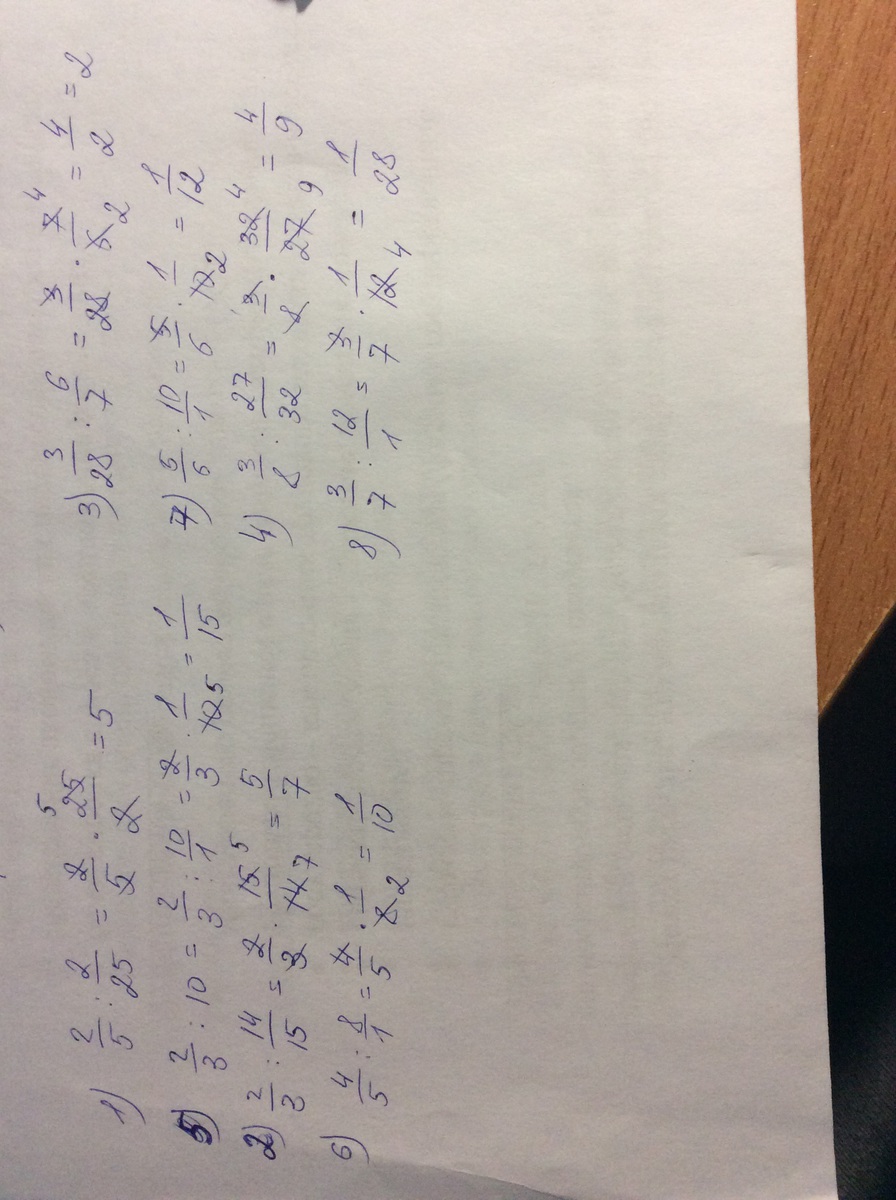 1) 2/5 : 2/25 = 2/5 · 25/2 5 = 5
5) 2/3 : 10 = 2/3 : 10/1 = 2/3 · 1/10 5 = 1/15
2) 2/3 : 14/15 = 2/3 · 15/14 5 7 = 5/7
6) 4/5 : 8/1 = 4/5 · 1/8 2 = 1/10
3) 3/28 : 6/7 = 3/28 · 7/6 4 2 = 4/2 = 2
7) 5/6 : 10/1 = 5/6 · 1/10 2 = 1/12
4) 3/8 : 27/32 = 3/8 · 32/27 4 9 = 4/9
8) 3/7 : 12/1 = 3/7 · 1/12 4 = 1/28